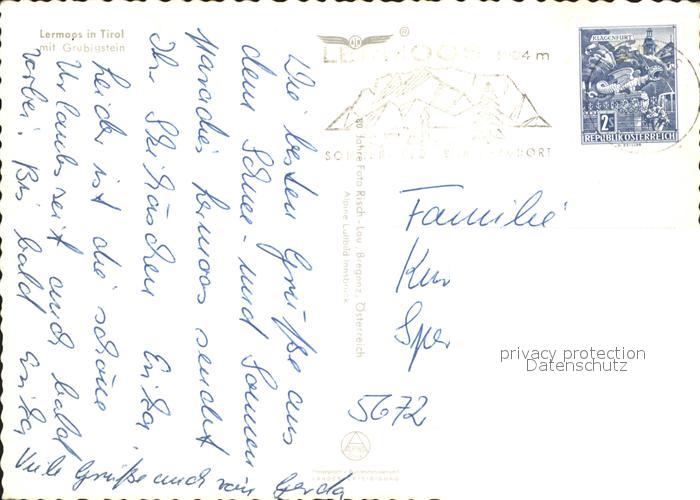 Lermoos in Tirol
mit Grubigstein
Die besten Grüße aus
dem Schnee- und Sonnen
paradies Lermoos sendet
Ihr Skihäschen Erika.
Leider ist die schöne
Urlaubszeit auch bald
vorbei. Bis bald Erika
Viele Grüße auch von Gerda
LERMOOS 1004 m
80 Jahre Foto Risch-Lau, Bregenz, Österreich
Alpine Luftbild Innsbruck
KLAGENFURT
2S
REPUBLIK ÖSTERREICH
Familie
5672
privacy protection
Datenschutz